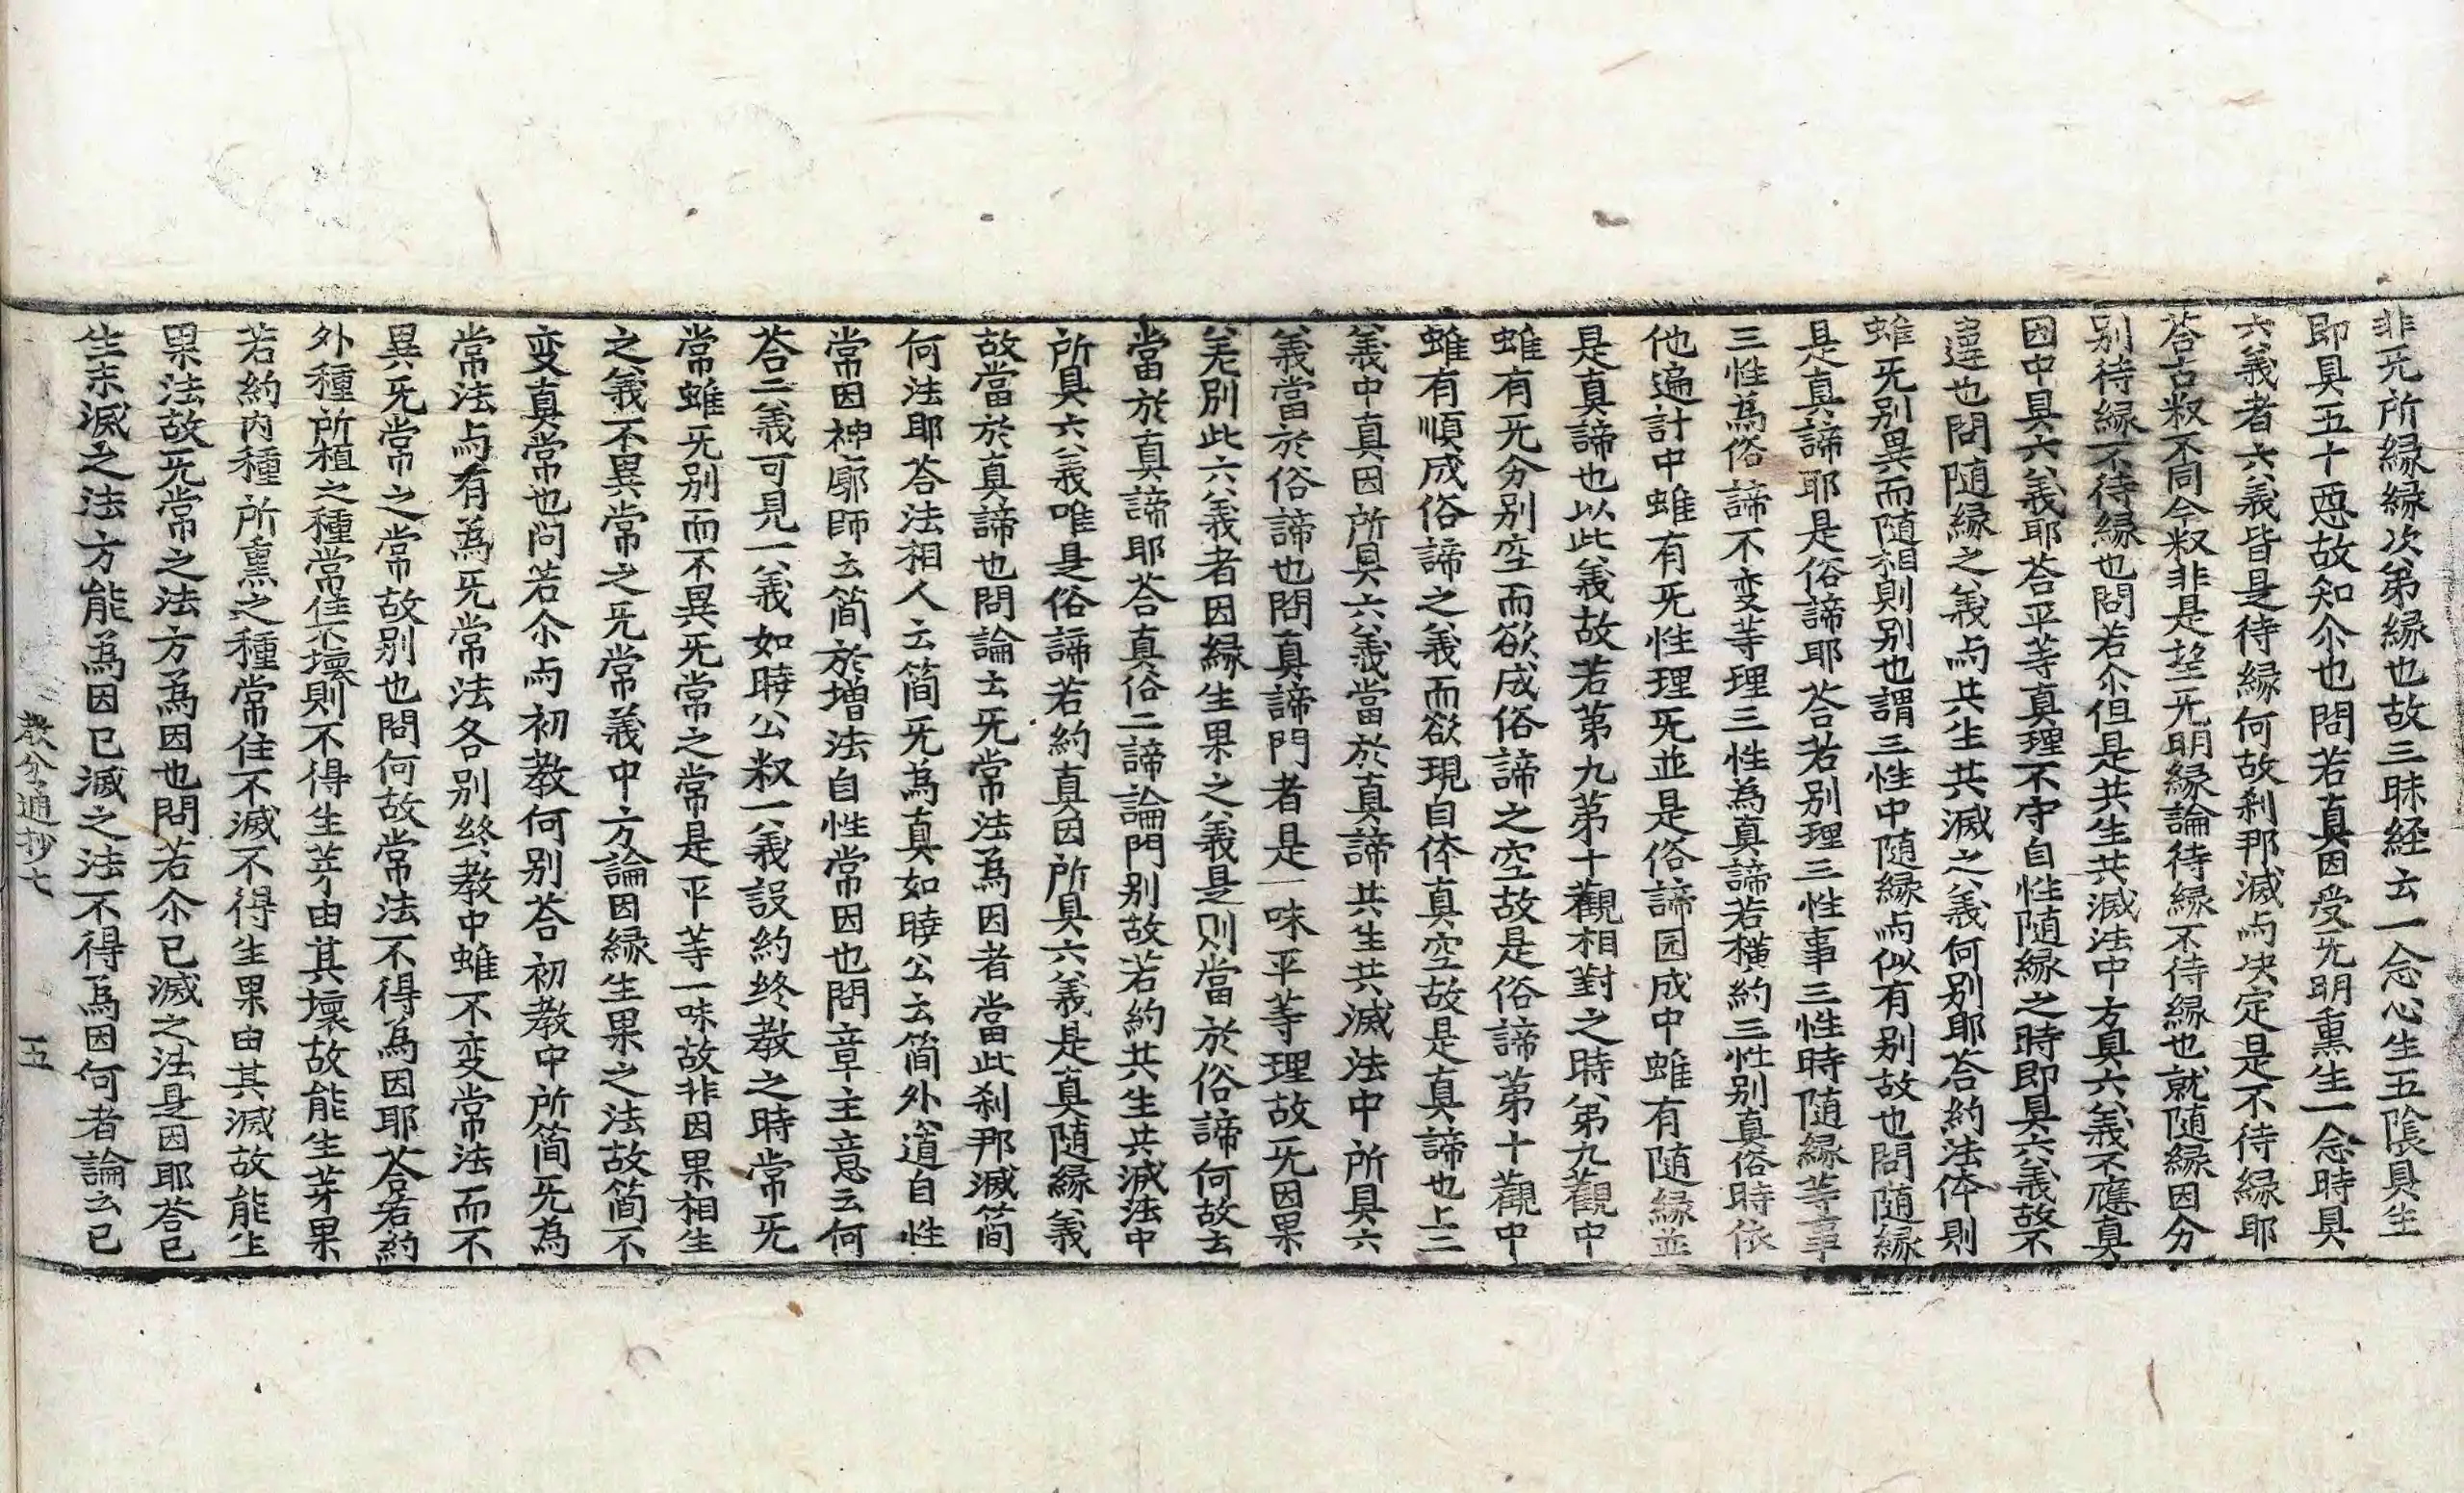 非无所縁縁次第縁也故三昧経云一念心生五陰具生
即具五十惡故知尒也問若真因受无明熏生一念時具
六義者六義皆是待縁何故刹那滅与决定是不待縁耶
荅古叔不同今叔非是望无明縁論待縁不待縁也就随縁因分
別待縁不待縁也問若尒但是共生共滅法中方具六義不應真
因中具六義耶荅平等真理不守自性随縁之時即具六義故不
違也問随縁之義与共生共滅之義何別耶荅約法体則
雖无別異而随相則別也謂三性中随縁与似有別故也問随縁
是真諦耶是俗諦耶荅若別理三性事三性時随縁等事
三性為俗諦不变等理三性為真諦若横約三性別真俗時依
他遍計中雖有无性理无並是俗諦园成中雖有随縁並
是真諦也以此義故若第九第十觀相對之時第九觀中
雖有无分別空而欲成俗諦之空故是俗諦第十觀中
雖有順成俗諦之義而欲現自体真空故是真諦也上三
義中真因所具六義當於真諦共生共滅法中所具六
義當於俗諦也問真諦門者是一味平等理故无因果
羌別此六義者因縁生果之義是則當於俗諦何故云
當於真諦耶荅真俗二諦論門別故若約共生共滅法中
所具六義唯是俗諦若約真因所具六義是真随縁義
故當於真諦也問論云无常法爲因者當此刹那滅簡
何法耶荅法相人云簡无為真如曉公云簡外道自性
常因神廓師云簡於增法自性常因也問章主意云何
荅二義可見一義如曉公叔一義設約終教之時常无
常雖无別而不異无常之常是平等一味故非因果相生
之義不異常之无常義中方論因縁生果之法故簡不
变真常也问若尒与初教何別荅初教中所簡无為
常法与有爲无常法各別終教中雖不变常法而不
異无常之常故別也問何故常法不得為因耶荅若約
外種所植之種常住不壞則不得生芽由其壞故能生芽果
若約內種所熏之種常住不滅不得生果由其滅故能生
果法故无常之法方為因也問若尒已滅之法是因耶荅已
生未滅之法方能爲因已滅之法不得爲因何者論云已
教分通抄七　五